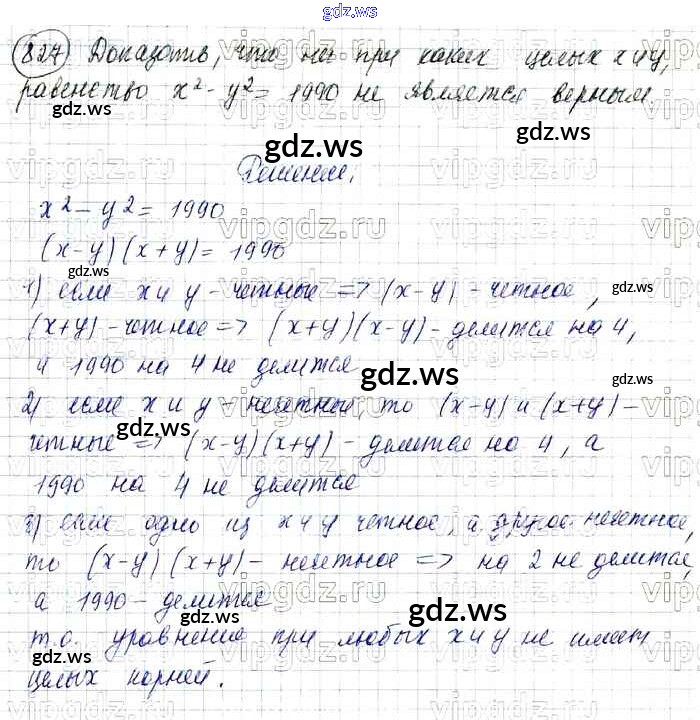 gdz.ws
827) Доказать, что ни при каких целых x и y,
равенство x² - y² = 1990 не является верным.
gdz.ws
Решение.
x² - y² = 1990
(x-y)(x+y) = 1990
gdz.ws
gdz.ws
1) если x и y - четные => (x-y) - четное,
gdz.ws
(x+y) - четное => (x+y)(x-y) - делится на 4,
а 1990 на 4 не делится
gdz.ws
gdz.ws
2) если x и y - нечетные, то (x-y) и (x+y) -
gdz.ws
четные => (x-y)(x+y) - делится на 4, а
1990 на 4 не делится
3) если одно из x и y четное, а другое нечетное,
то (x-y)(x+y) - нечетное => на 2 не делится,
а 1990 - делится
gdz.ws
gdz.ws
т.о. уравнения при любых x и y не имеет
целых корней.
gdz.ws
gdz.ws